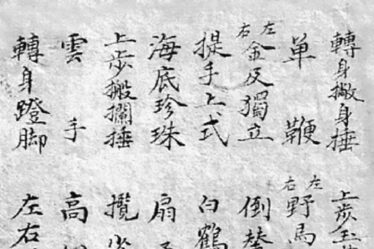 轉身撇身捶 上步
單鞭 左右野馬
左右金反獨立 倒
提手上式 白鶴
海底珍珠 扇
上步搬攔捶 攬
雲手 高
轉身蹬脚 左右